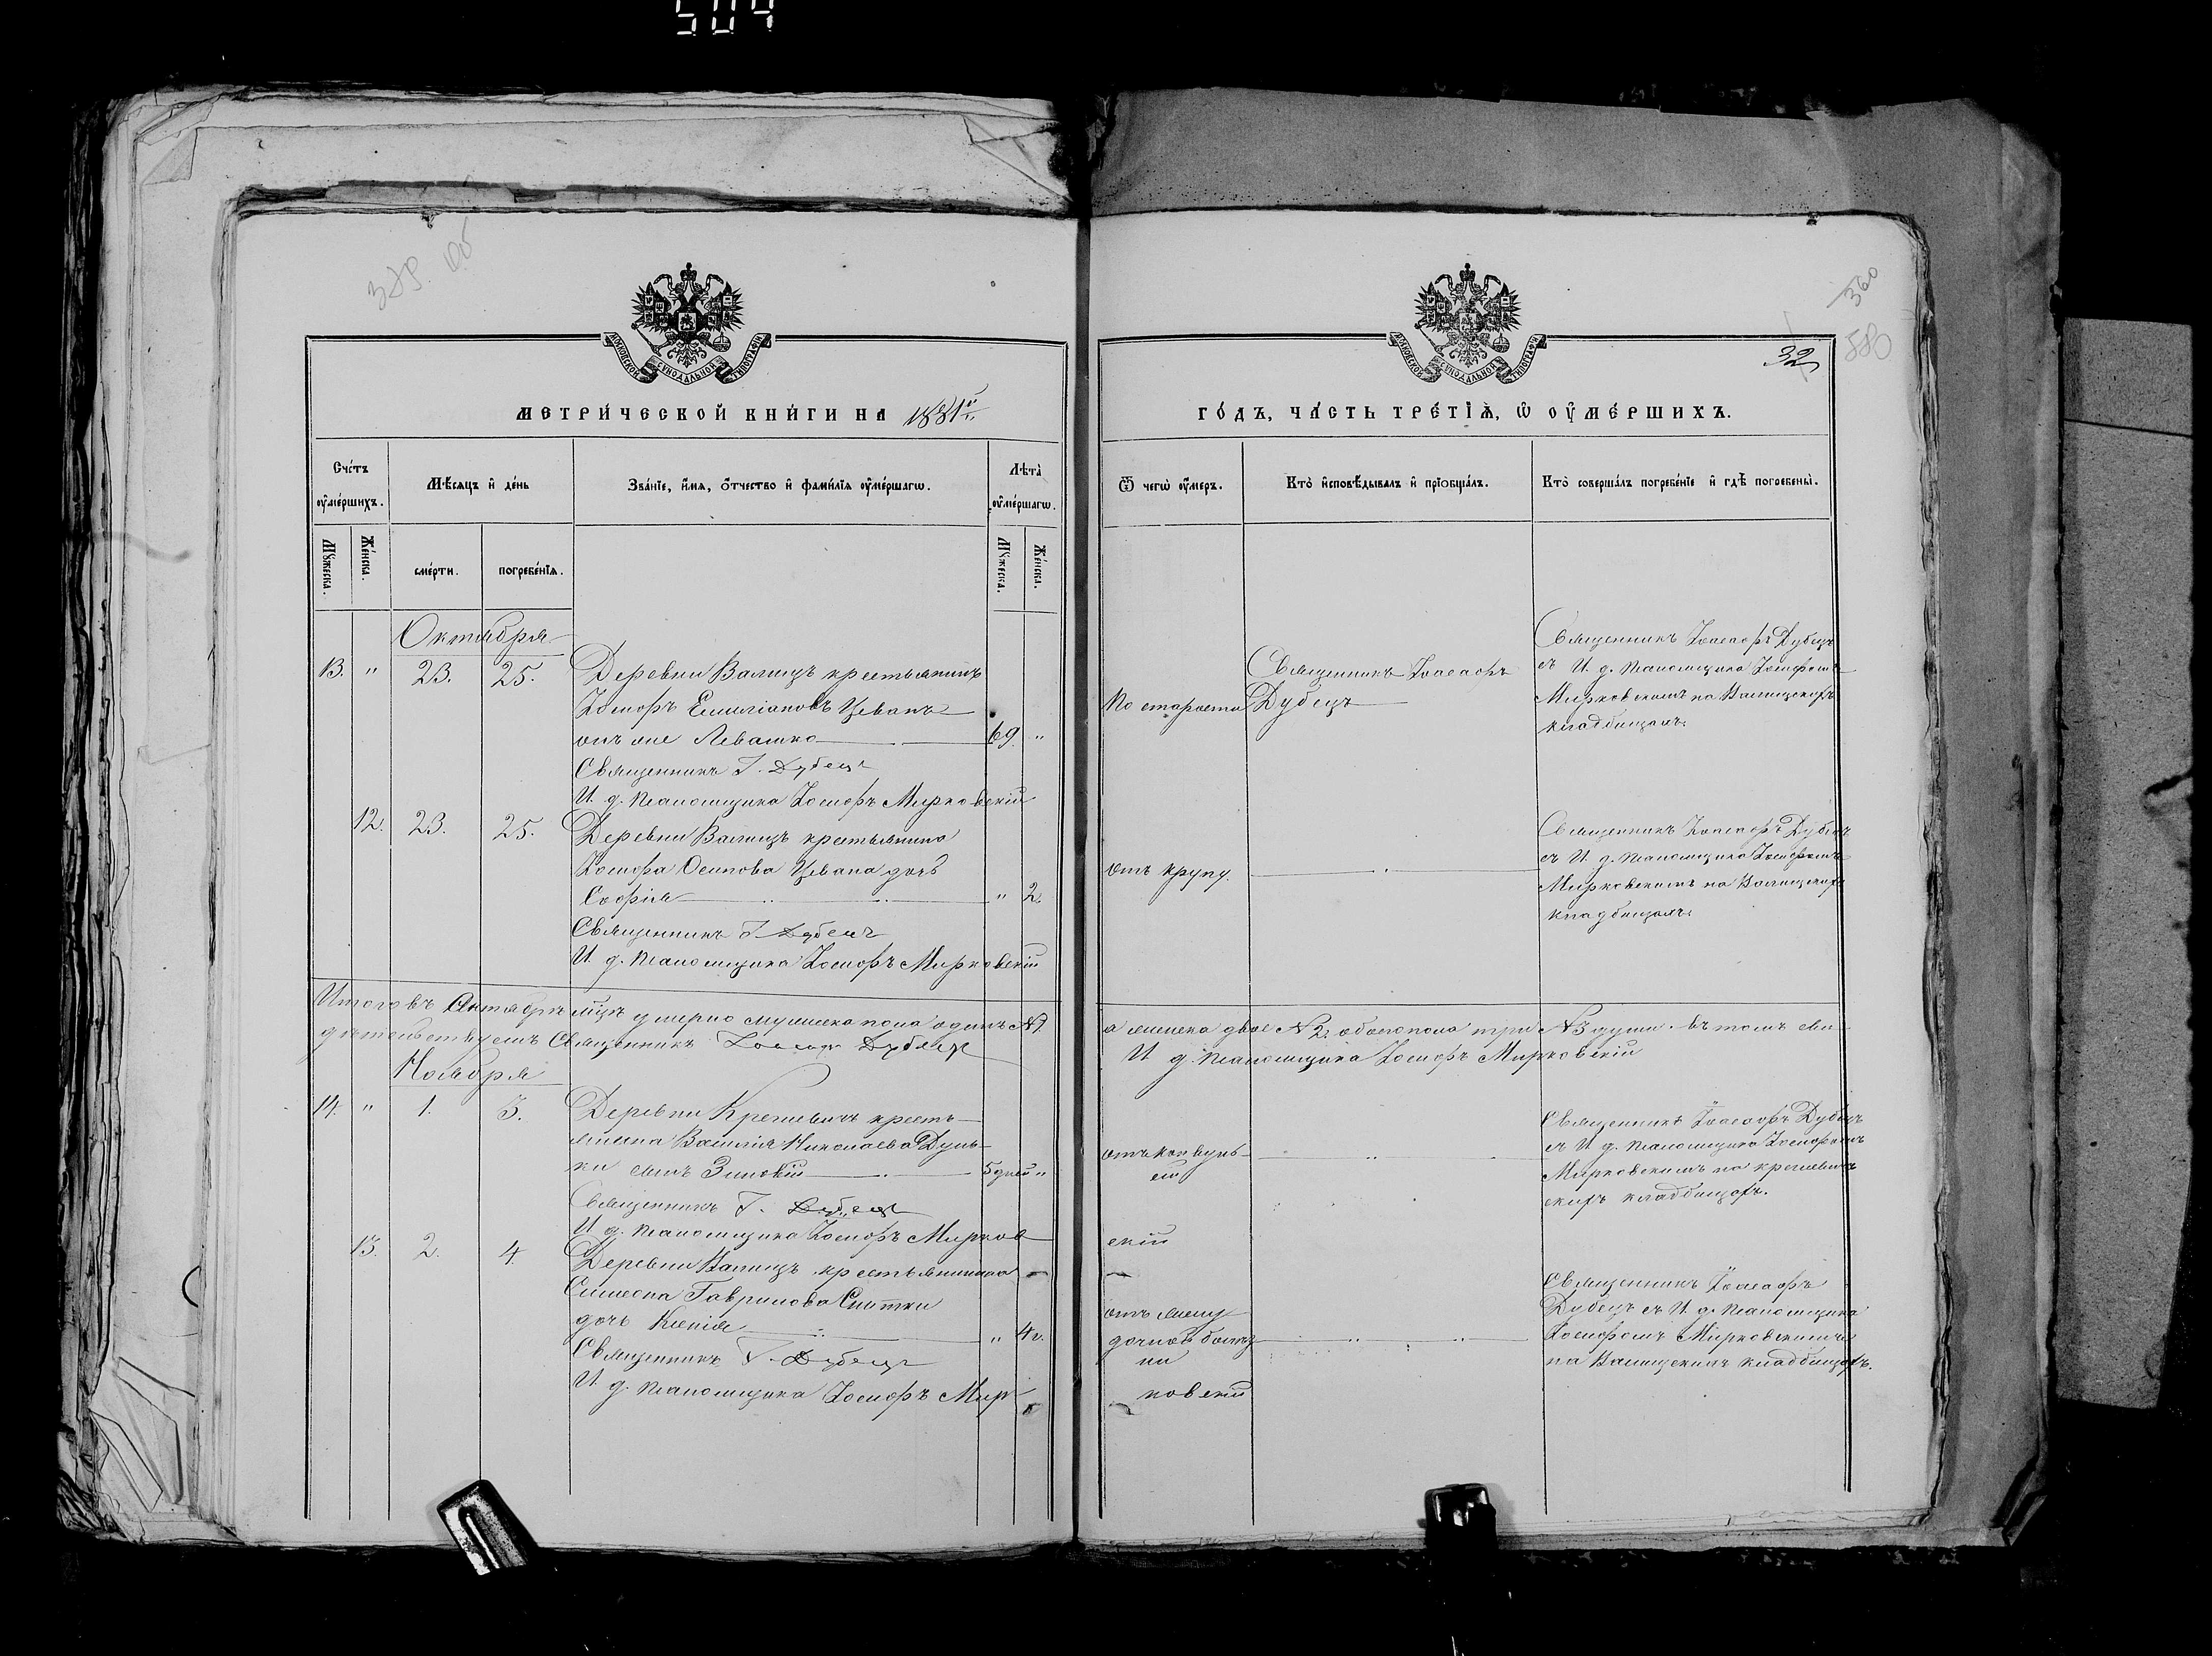 504
379
МОСКОВСКОЙ СѴНОДАЛЬНОЙ ТИПОГРАФІИ
МЕТРИ́ЧЕСКОЙ КНИ́ГИ НА 1881й
Сче́тъ ᲂу҆ме́ршихъ.
Мѣ́сяцъ и҆ де́нь
Зва́нїе, и҆́мя, ѻ҆́тчество и҆ фами́лїя ᲂу҆ме́ршагѡ.
Лѣта̀ ᲂу҆ме́ршагѡ.
Мꙋ́жеска.
Же́нска.
сме́рти.
погребе́нїя.
Мꙋ́жеска.
Же́нска.
Октября
13. " 23. 25. Деревни Валищъ крестьянинъ
Іосифъ Емиліановъ Цеванъ
онъ же Левашко 69. "
Священникъ І. Дубецъ
И. д. псаломщика Іосифъ Мирковскій
12. 23. 25. Деревни Валищъ крестьянина
Іосифа Осипова Цевана дочь
Софія " 2.
Священникъ І. Дубецъ
И. д. псаломщика Іосифъ Мирковскій
Итого въ Октябрѣ мцѣ умерло мужеска пола одинъ №1.
дѣтельствуемъ Священникъ Іоасафъ Дубецъ
Ноября
14. " 1. 3. Деревни Кремевичъ кресть-
янина Василія Николаева Дунь-
ки сынъ Зиновій 5 дней "
Священникъ І. Дубецъ
И. д. псаломщика Іосифъ Мирков
13. 2. 4. Деревни Валищъ крестьянина
Симеона Гаврилова Снитки
дочь Ксенія " 4.
Священникъ І. Дубецъ
И. д. псаломщика Іосифъ Мир
360
580
32
МОСКОВСКОЙ СѴНОДАЛЬНОЙ ТИПОГРАФІИ
ГО́ДЪ, ЧА́СТЬ ТРЕ́ТЇѦ, Ѡ҆ ᲂУ҆МЕ́РШИХЪ.
Ѿ чегѡ̀ ᲂу҆́меръ.
Кто̀ и҆сповѣ́дывалъ и҆ прїѡбща́лъ.
Кто̀ соверша́лъ погребе́нїе и҆ гдѣ̀ погребены̀.
По старости
Священникъ Іоасафъ
Дубецъ
Священникъ Іоасафъ Дубецъ
съ И. д. псаломщика Іосифомъ
Мирковскимъ на Валищскомъ
кладбищѣ.
отъ крупу.
Священникъ Іоасафъ Дубецъ
съ И. д. псаломщика Іосифомъ
Мирковскимъ на Валищскомъ
кладбищѣ.
а женска двое №2. обоего пола три №3 души. въ томъ сви-
И. д. псаломщика Іосифъ Мирковскій
отъ конвуль-
сій
Священникъ Іоасафъ Дубецъ
съ И. д. псаломщика Іосифомъ
Мирковскимъ на кремевич
скихъ кладбищахъ.
скій
отъ желу
дочной болѣз
ни
Священникъ Іоасафъ
Дубецъ съ И. д. псаломщика
Іосифомъ Мирковскимъ
на Валищскихъ кладбищахъ.
ковскій